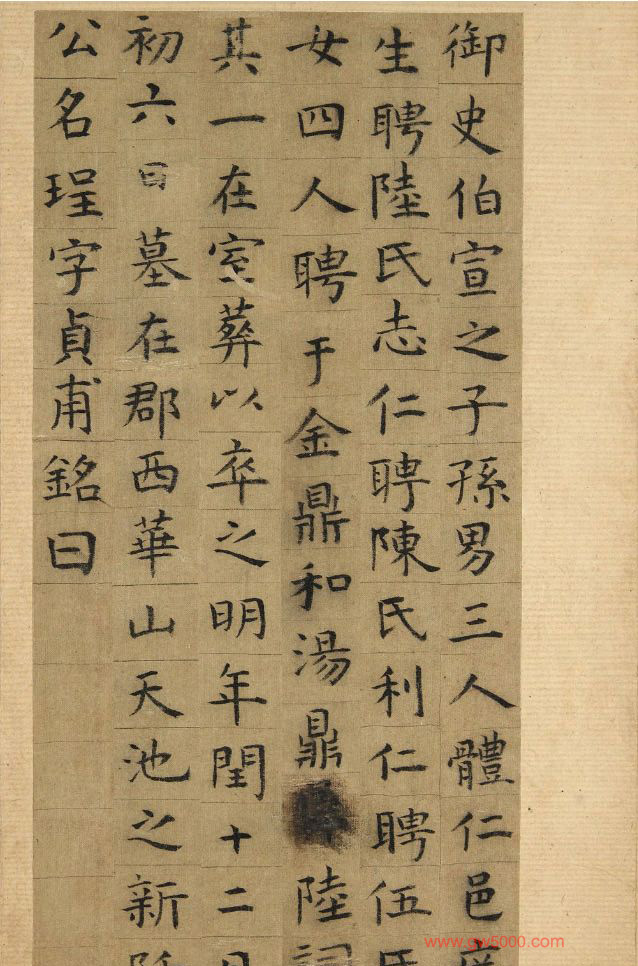 御史伯宣之子孫男三人體仁邑
生聘陸氏志仁聘陳氏利仁聘伍
女四人聘于金鼎和湯鼎陸
其一在室葬以卒之明年閏十二
初六日墓在郡西華山天池之新
公名珵字貞甫銘曰
www.gw5000.com